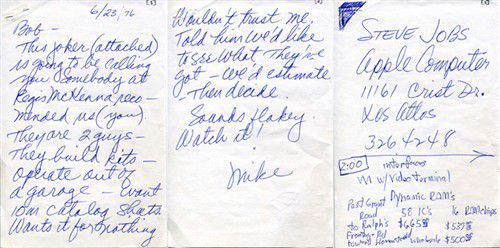 6/23/76
Bob -
This joker (attached)
is going to be calling
you. Somebody at
Regis McKenna reco-
mended us (you)
They are 2 guys -
They build kits -
operate out of
a garage - want
10m catalog sheets
Wants it for nothing
Wouldn't trust me.
Told him we'd like
to see what they've
got - we'd estimate
- Then decide.
Sounds flakey.
Watch it!
Mike
STEVE JOBS
Apple Computer
11161 Crist Dr.
Los Altos
3264248
2:00 interfaces
w/ video terminal
Dynamic RAM's
Past Grant 58 IC's 16 RAM chips
Road
to Ralph's $665 $537
Fremont Rd
toward Homestead wholesale $500